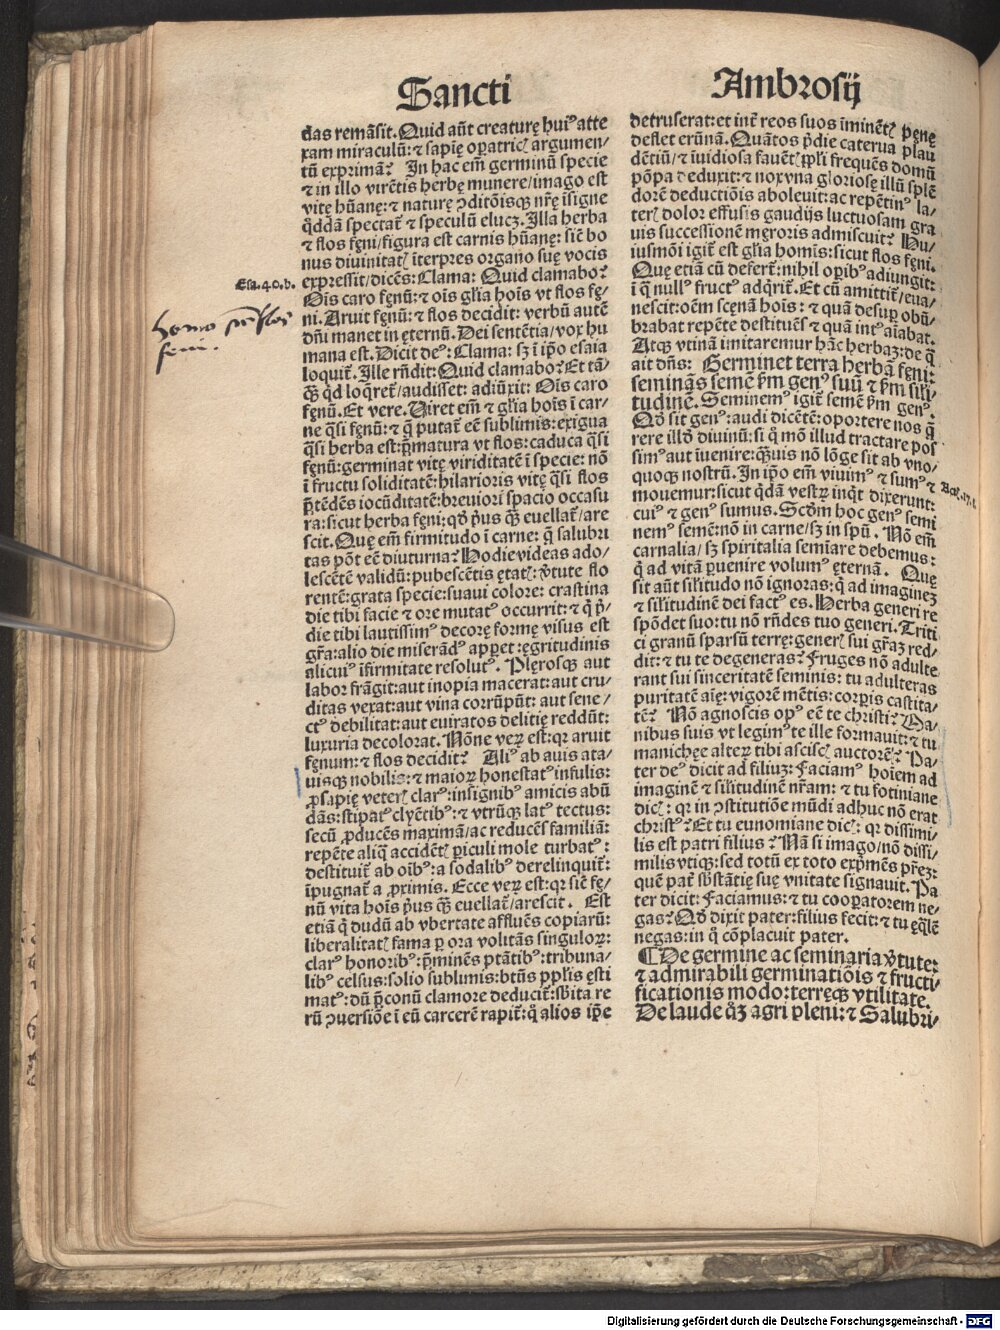 Sancti
Ambrosij
das remāsit. Quid aūt creaturę huiꝰ atte
xam miraculū: ⁊ sapię opatric argumen/
tū exprimā? In hac em̄ germinū specie
⁊ in illo virētis herbę munere/imago est
vitę hūanę: ⁊ naturę ꝯditōisqꝫ nr̄ę īsigne
q̄ddā spectat̄ ⁊ speculū elucꝫ. Illa herba
⁊ flos fęni/figura est carnis hūanę: siē bo
nus diuinitat īterpres organo suę vocis
expressit/dicēs: Clama: Quid clamabo?
Ois caro fęnū: ⁊ ois gl̄ia hoīs vt flos fę/
ni. Aruit fęnū: ⁊ flos decidit: verbū autē
dn̄i manet in ęternū. Dei sentētia/vox hu
mana est. Dicit deꝰ: Clama: sꝫ ī ip̄o esaia
loquit̄. Ille rn̄dit: Quid clamabo? Et tā/
qꝫ̄ qd loq̄ret̄/audisset: adiūxit: Ois caro
fęnū. Et vere. Viret em̄ ⁊ gl̄ia hoīs ī car/
ne q̄si fęnū: ⁊ q̄ putat̄ eē sublimis: exigua
q̄si herba est: p̄matura vt flos: caduca q̄si
fęnū: germinat vitę viriditatē ī specie: nō
ī fructu soliditatē: hilarioris vitę q̄si flos
p̄tēdēs iocūditatē: breuiori spacio occasu
ra: sicut herba fęni: qd̄ pꝰus qꝫ̄ euellat̄/are
scit. Quę em̄ firmitudo ī carne: q̄ salubri
tas pōt eē diuturna? Hodie videas ado/
lescētē validū: pubescētis ętat: v̄tute flo
rentē: grata specie: suaui colore: crastina
die tibi facie ⁊ ore mutatꝰ occurrit: ⁊ q̄ p̄/
die tibi lautissimꝰ decorę formę visus est
gr̄a: alio die miserādꝰ apꝑet: ęgritudinis
alicuiꝰ īfirmitate resolutꝰ. Plęrosqꝫ aut
labor frāgit: aut inopia macerat: aut cru/
ditas vexat: aut vina corrūpūt: aut sene/
ctꝰ debilitat: aut euiratos delitię reddūt:
luxuria decolorat. Nōne veꝝ est: qꝛ aruit
fęnum: ⁊ flos decidit? Aliꝰ ab auis ata/
uisqꝫ nobilis: ⁊ maioꝝ honestatꝰ infulis:
ꝓsapię veter clarꝰ: insignibꝰ amicis abū
dās: stipatꝰ clyētibꝰ: ⁊ vtrūqꝫ latꝰ tectus:
secū ꝓducēs maximā/ac reducēs familiā:
repēte aliq̄ accidēt ꝑiculi mole turbatꝰ:
destituit̄ ab oībꝰ: a sodalibꝰ derelinquit̄:
īpugnat̄ a ꝓximis. Ecce veꝝ est: qꝛ siē fę/
nū vita hoīs pꝰus qꝫ̄ euellat̄/arescit. Est
etiā q̄ dudū ab vbertate affluēs copiarū:
liberalitat fama ꝑ ora volitās singuloꝝ:
clarꝰ honoribꝰ: p̄minēs ptātibꝰ: tribuna/
libꝰ celsus: solio sublimis: btūs ppl̄is ęsti
matꝰ: dū p̄conū clamore deducit̄: sb̄ita re
rū ꝯuersiōe ī eū carcerē rapit̄: q̄ alios ip̄e
detruserat: et int̄ reos suos īminēt pęnę
deflet erūnā. Quātos pdie caterua plau
dētiū/⁊ īuidiosa fauēt ppl̄i frequēs domū
pōpa deduxit: ⁊ nox vna gloriosę illū splē
dorē deductiōis aboleuit: ac repētinꝰ la/
ter dolor effusis gaudijs luctuosam gra
uis successionē męroris admiscuit? Hu/
iusmōi igit̄ est gl̄ia homīs: sicut flos fęni.
Quę etiā cū defert̄: nihil opibꝰ adiungit:
ī q̄ nullꝰ fructꝰ adqrit̄. Et cū amittit̄/eua/
nescit: oēm scęnā hoīs: ⁊ quā desuꝑ obū/
brabat repēte destituēs ⁊ quā intꝰ aīabat.
Atqꝫ vtinā imitaremur hāc herbaꝫ: de q̄
ait dn̄s: Germinet terra herbā fęni:
seminās semē ẜm genꝰ suū ⁊ ẜm sili/
tudinē. Seminemꝰ igit̄ semē ẜm genꝰ.
Qd̄ sit genꝰ: audi dicētē: oportere nos q̄
rere illd̄ diuinū: si q̄ mō illud tractare pos
simꝰ aut īuenire: qꝫ̄uis nō lōge sit ab vno/
quoqꝫ nostrū. In ip̄o em̄ viuimꝰ ⁊ sumꝰ ⁊
mouemur: sicut qdā vestꝝ inqt dixerunt:
cuiꝰ ⁊ genꝰ sumus. Scd̄m hoc genꝰ semi
nemꝰ semē: nō in carne/sꝫ in spū. Nō em̄
carnalia/sꝫ spiritalia semīare debemus:
q̄ ad vitā ꝑuenire volumꝰ ęternā. Quę
sit aūt sil̄itudo nō ignoras: q̄ ad imagineꝫ
⁊ sil̄itudinē dei factꝰ es. Herba generi re
spōdet suo: tu nō rn̄des tuo generi. Triti
ci granū sparsū terrę: gener sui gr̄aꝫ red/
dit: ⁊ tu te degeneras? Fruges nō adulte
rant sui sinceritatē seminis: tu adulteras
puritatē aīę: vigorē mētis: corꝑis castita/
tē? Nō agnoscis opꝰ eē te christi? Ma/
nibus suis vt legimꝰ te ille formauit: ⁊ tu
manichęe alteꝝ tibi ascisc auctorē? Pa/
ter deꝰ dicit ad filiuꝫ: Faciamꝰ hoīem ad
imaginē ⁊ sil̄itudinē nr̄am: ⁊ tu fotiniane
dic: qꝛ in ꝯstitutiōe mūdi adhuc nō erat
christꝰ? Et tu eunomiane dic: qꝛ dissimi/
lis est patri filius? Nā si imago/nō dissi/
milis vtiqꝫ: sed totū ex toto exp̄mēs pr̄eꝫ:
quē pat̄ sb̄stātię suę vnitate signauit. Pa
ter dicit: Faciamus: ⁊ tu coopatorem ne/
gas? Qd̄ dixit pater: filius fecit: ⁊ tu ęq̄lē
negas: in q̄ cōplacuit pater.
¶ De germine ac seminaria v̄tute:
⁊ admirabili germinatiōis ⁊ fructi/
ficationis modo: terręqꝫ vtilitate.
De laude q̄ꝫ agri pleni: ⁊ Salubri/
Esa. 40. b.
homo
feni.
Act. 17.
Digitalisierung gefördert durch die Deutsche Forschungsgemeinschaft - DFG